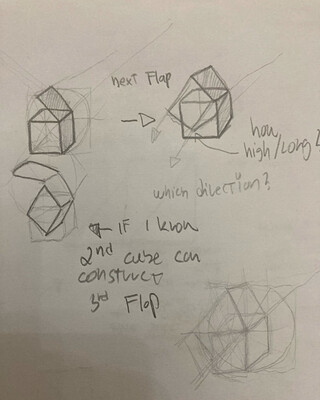 next Flap
how
high/long?
which direction?
IF I know
2nd cube can
construct
3rd Flap